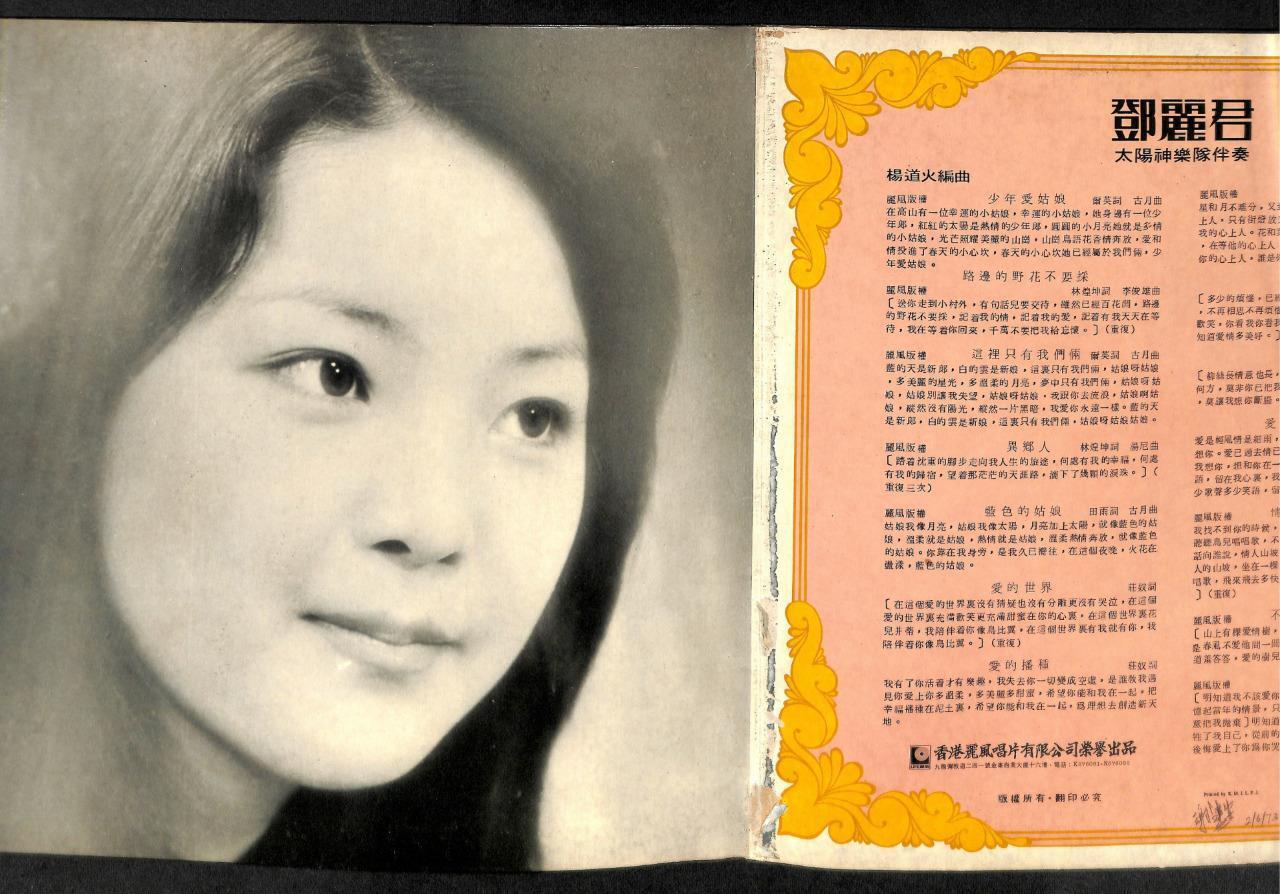 鄧麗君
太陽神樂隊伴奏
楊道火編曲
麗風版權 少年愛姑娘 爾英詞 古月曲
在高山有一位幸運的小姑娘，幸運的小姑娘，她身邊有一位少
年郎，紅紅的太陽是熱情的少年郎，圓圓的小月亮她就是多情
的小姑娘，光芒照耀美麗的山崗，山崗鳥語花香情奔放，愛和
情投進了春天的小心坎，春天的小心坎她已經屬於我們倆，少
年愛姑娘。
路邊的野花不要採
麗風版權 林煌坤詞 李俊雄曲
［送你走到小村外，有句話兒要交待，雖然已經百花開，路邊
的野花不要採，記着我的情，記着我的愛，記着有我天天在等
待，我在等着你回來，千萬不要把我給忘懷。］（重復）
麗風版權 這裡只有我們倆 爾英詞 古月曲
藍的天是新郎，白的雲是新娘，這裏只有我們倆，姑娘呀姑娘
，多美麗的星光，多溫柔的月亮，夢中只有我們倆，姑娘呀姑
娘，姑娘別讓我失望，姑娘呀姑娘，我跟你去流浪，姑娘啊姑
娘，縱然沒有陽光，縱然一片黑暗，我愛你永遠一樣。藍的天
是新郎，白的雲是新娘，這裏只有我們倆，姑娘呀姑娘姑娘。
麗風版權 異鄉人 林煌坤詞 湯尼曲
［踏着沈重的腳步走向我人生的旅途，何處有我的幸福，何處
有我的歸宿，望着那茫茫的天涯路，滴下了幾顆的淚珠。］（
重復三次）
麗風版權 藍色的姑娘 田雨詞 古月曲
姑娘我像月亮，姑娘我像太陽，月亮加上太陽，就像藍色的姑
娘，溫柔就是姑娘，熱情就是姑娘，溫柔熱情奔放，就像藍色
的姑娘。你靠在我身旁，是我久已嚮往，在這個夜晚，火花在
盪漾，藍色的姑娘。
愛的世界 莊奴詞
［在這個愛的世界裏沒有猜疑也沒有分離更沒有哭泣，在這個
愛的世界裏充滿歡笑更充滿甜蜜在你的心裏，在這個世界裏花
兒并蒂，我陪伴着你像鳥比翼，在這個世界裏有我就有你，我
陪伴着你像鳥比翼。］（重復）
愛的播種 莊奴詞
我有了你活着才有樂趣，我失去你一切變成空虛，是誰教我遇
見你愛上你多溫柔，多美麗多甜蜜，希望你能和我在一起，把
幸福播種在泥土裏，希望你能和我在一起，爲理想去創造新天
地。
香港麗風唱片有限公司榮譽出品
版權所有·翻印必究
麗風版權
星和月不離分，又
上人，只有街燈放
我的心上人。花和
，在等他的心上人
你的心上人，誰是
［多少的煩惱，已經
，不再相思不再煩惱
歡笑，你看我你看我
知道愛情多美好。］
何方，莫非你已把我
，莫讓我想你斷腸。
愛
愛是輕風情是細雨，
想你。愛已過去情已
我想你，想和你在一
語，留在我心裏，我
少歌聲多少笑語，留
麗風版權 情
我找不到你的時候，
聽聽鳥兒唱唱歌，不
話向誰說，情人山坡
人的山坡，坐在一棵
唱歌，飛來飛去多快
］（重復）
麗風版權 不
［山上有棵愛情樹，
是春風不愛他問一個
道羞答答，愛的樹兒
麗風版權
［明知道我不該愛你
憶起當年的情景，只
意把我拋棄］明知道
牲了我自己，從前的
後悔愛上了你爲你哭
2/6/73